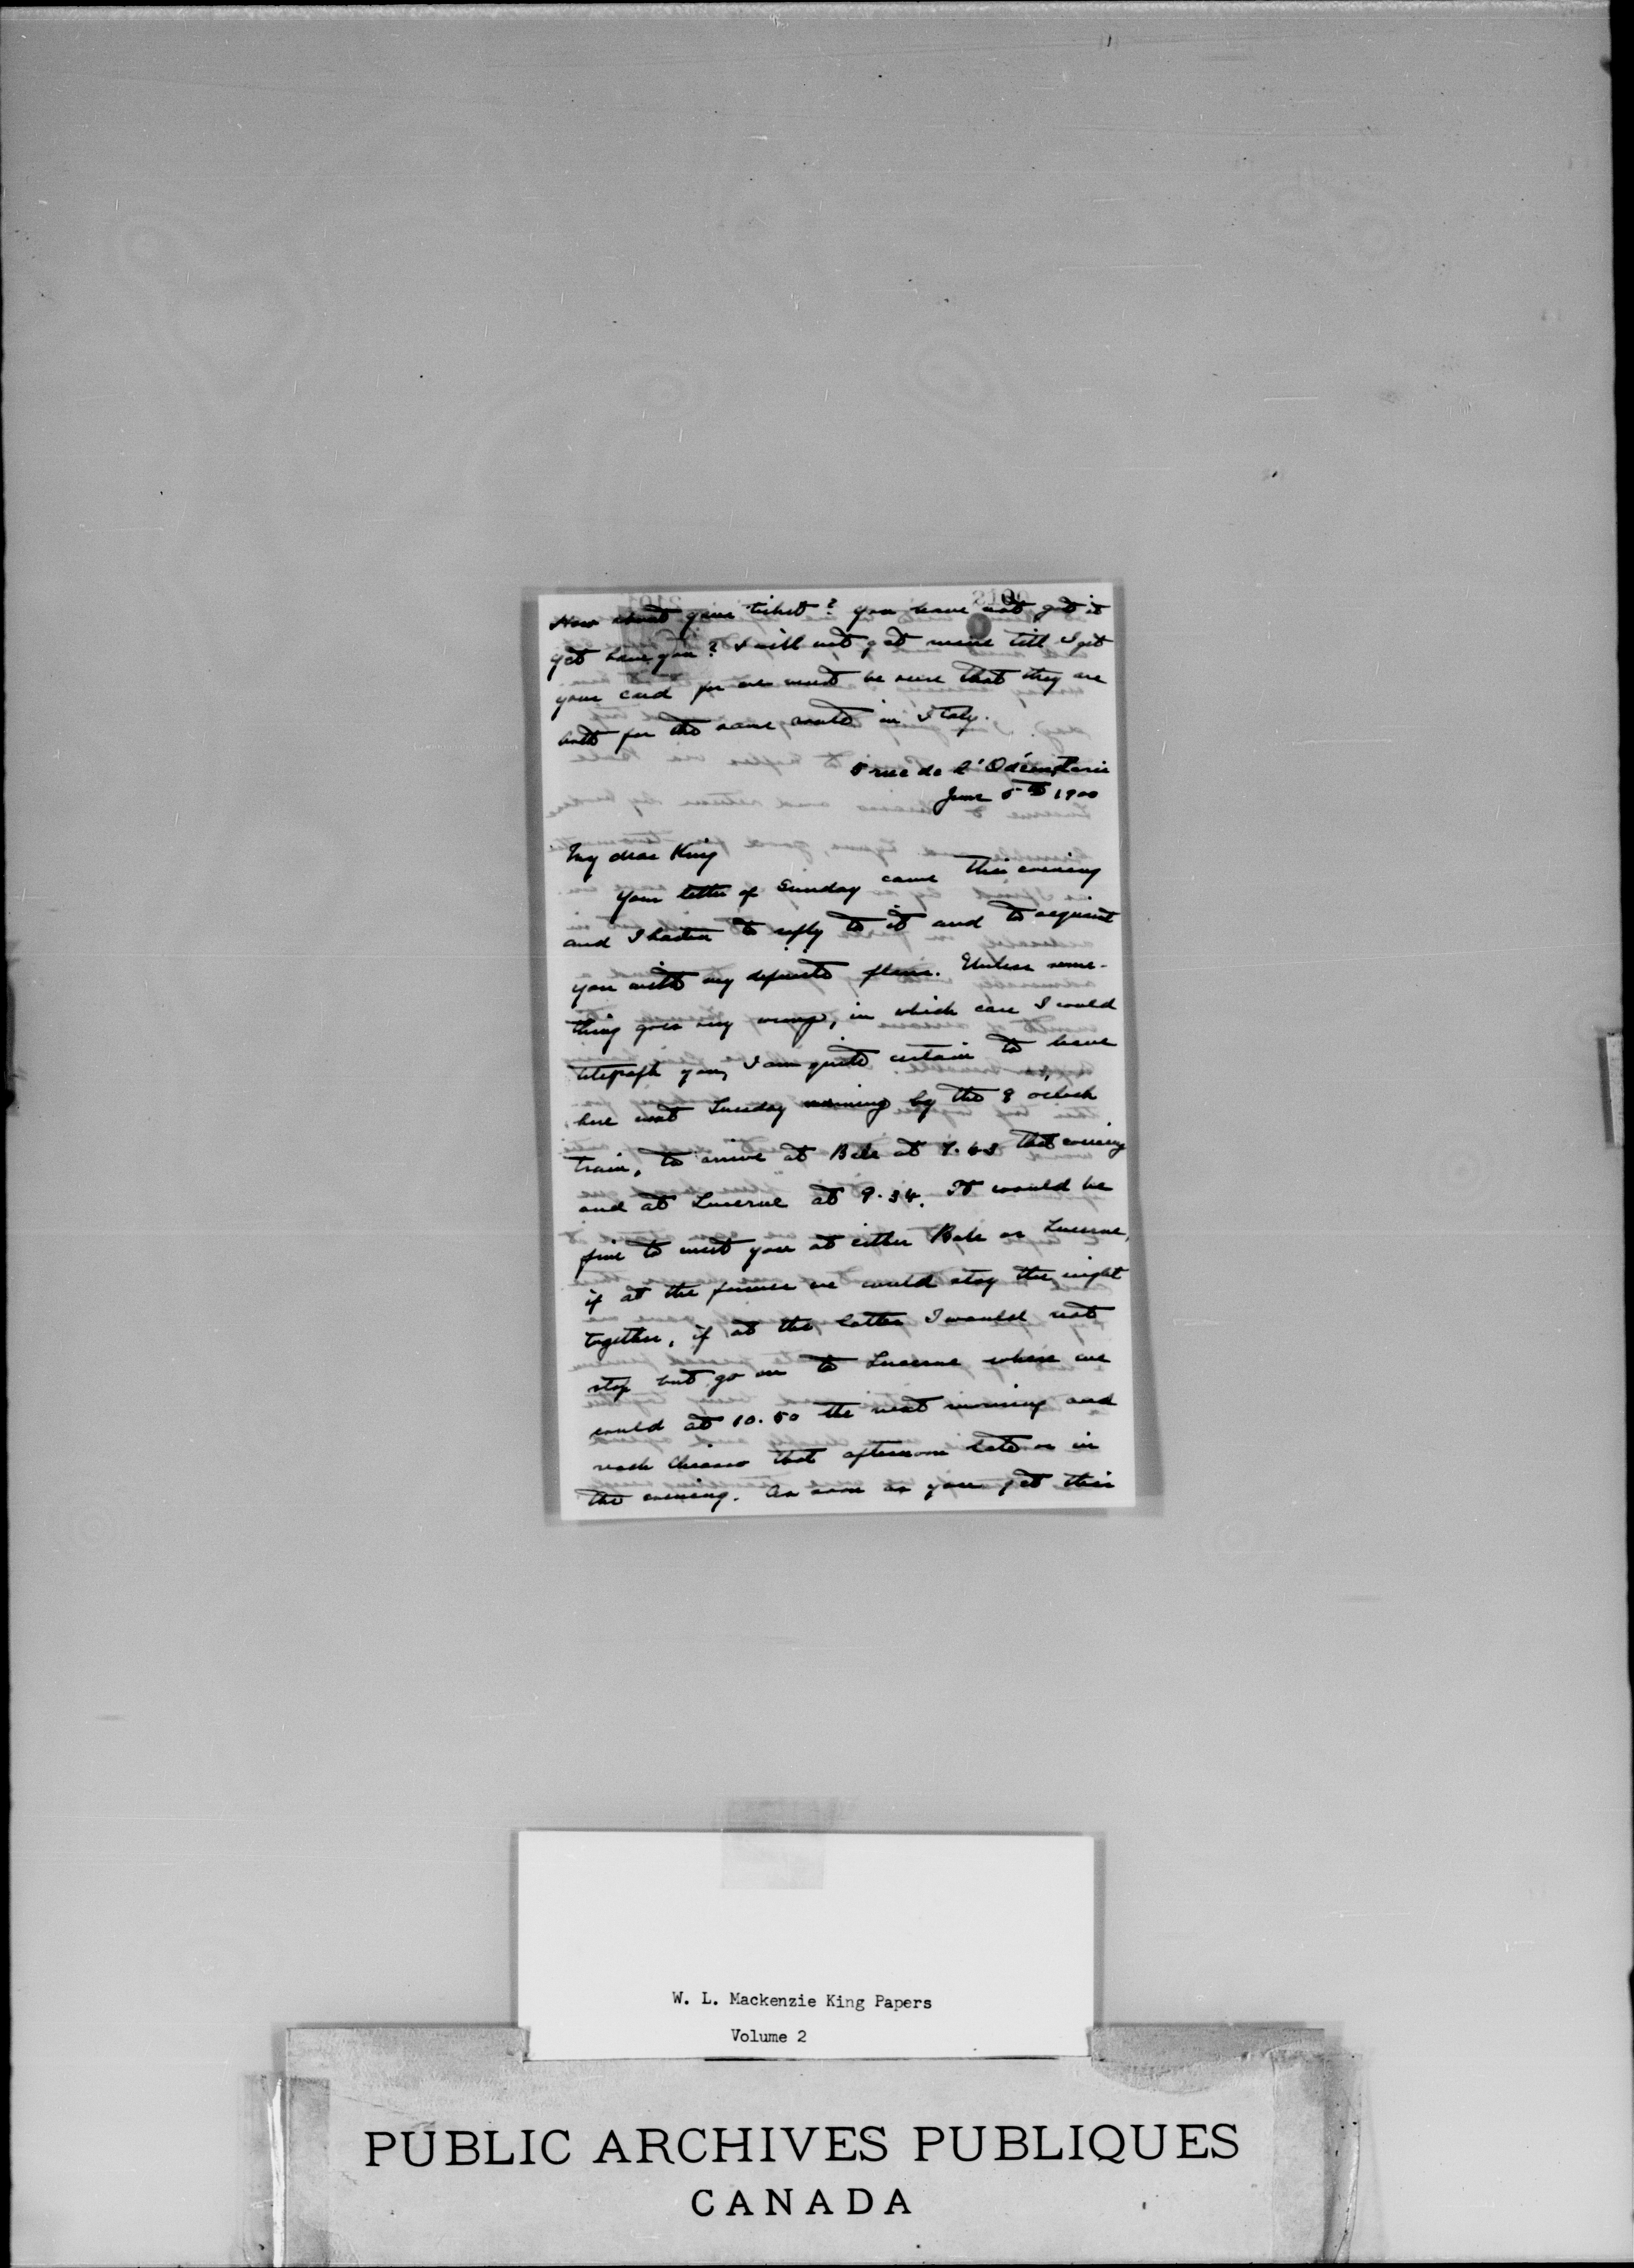 How about your ticket? you have not got it
yet have you? I will not get mine till I get
your card for we must be sure that they are
both for the same route in Italy.
5 rue de l'Odéon, Paris
June 5th 1900
My dear King
Your letter of Sunday came this evening
and I hasten to reply to it and to acquaint
you with my definite plans. Unless some-
thing goes very wrong, in which case I would
telegraph you, I am quite certain to leave
here next Tuesday morning by the 8 oclock
train, to arrive at Bale at 7.43 that evening
and at Lucerne at 9.34. It would be
fine to meet you at either Bale or Lucerne,
if at the former we could stay the night
together, if at the latter I would not
stop but go on to Lucerne where we
could at 10.50 the next morning and
reach Chiasso that afternoon late or in
the evening. As soon as you get this
W. L. Mackenzie King Papers
Volume 2
PUBLIC ARCHIVES PUBLIQUES
CANADA